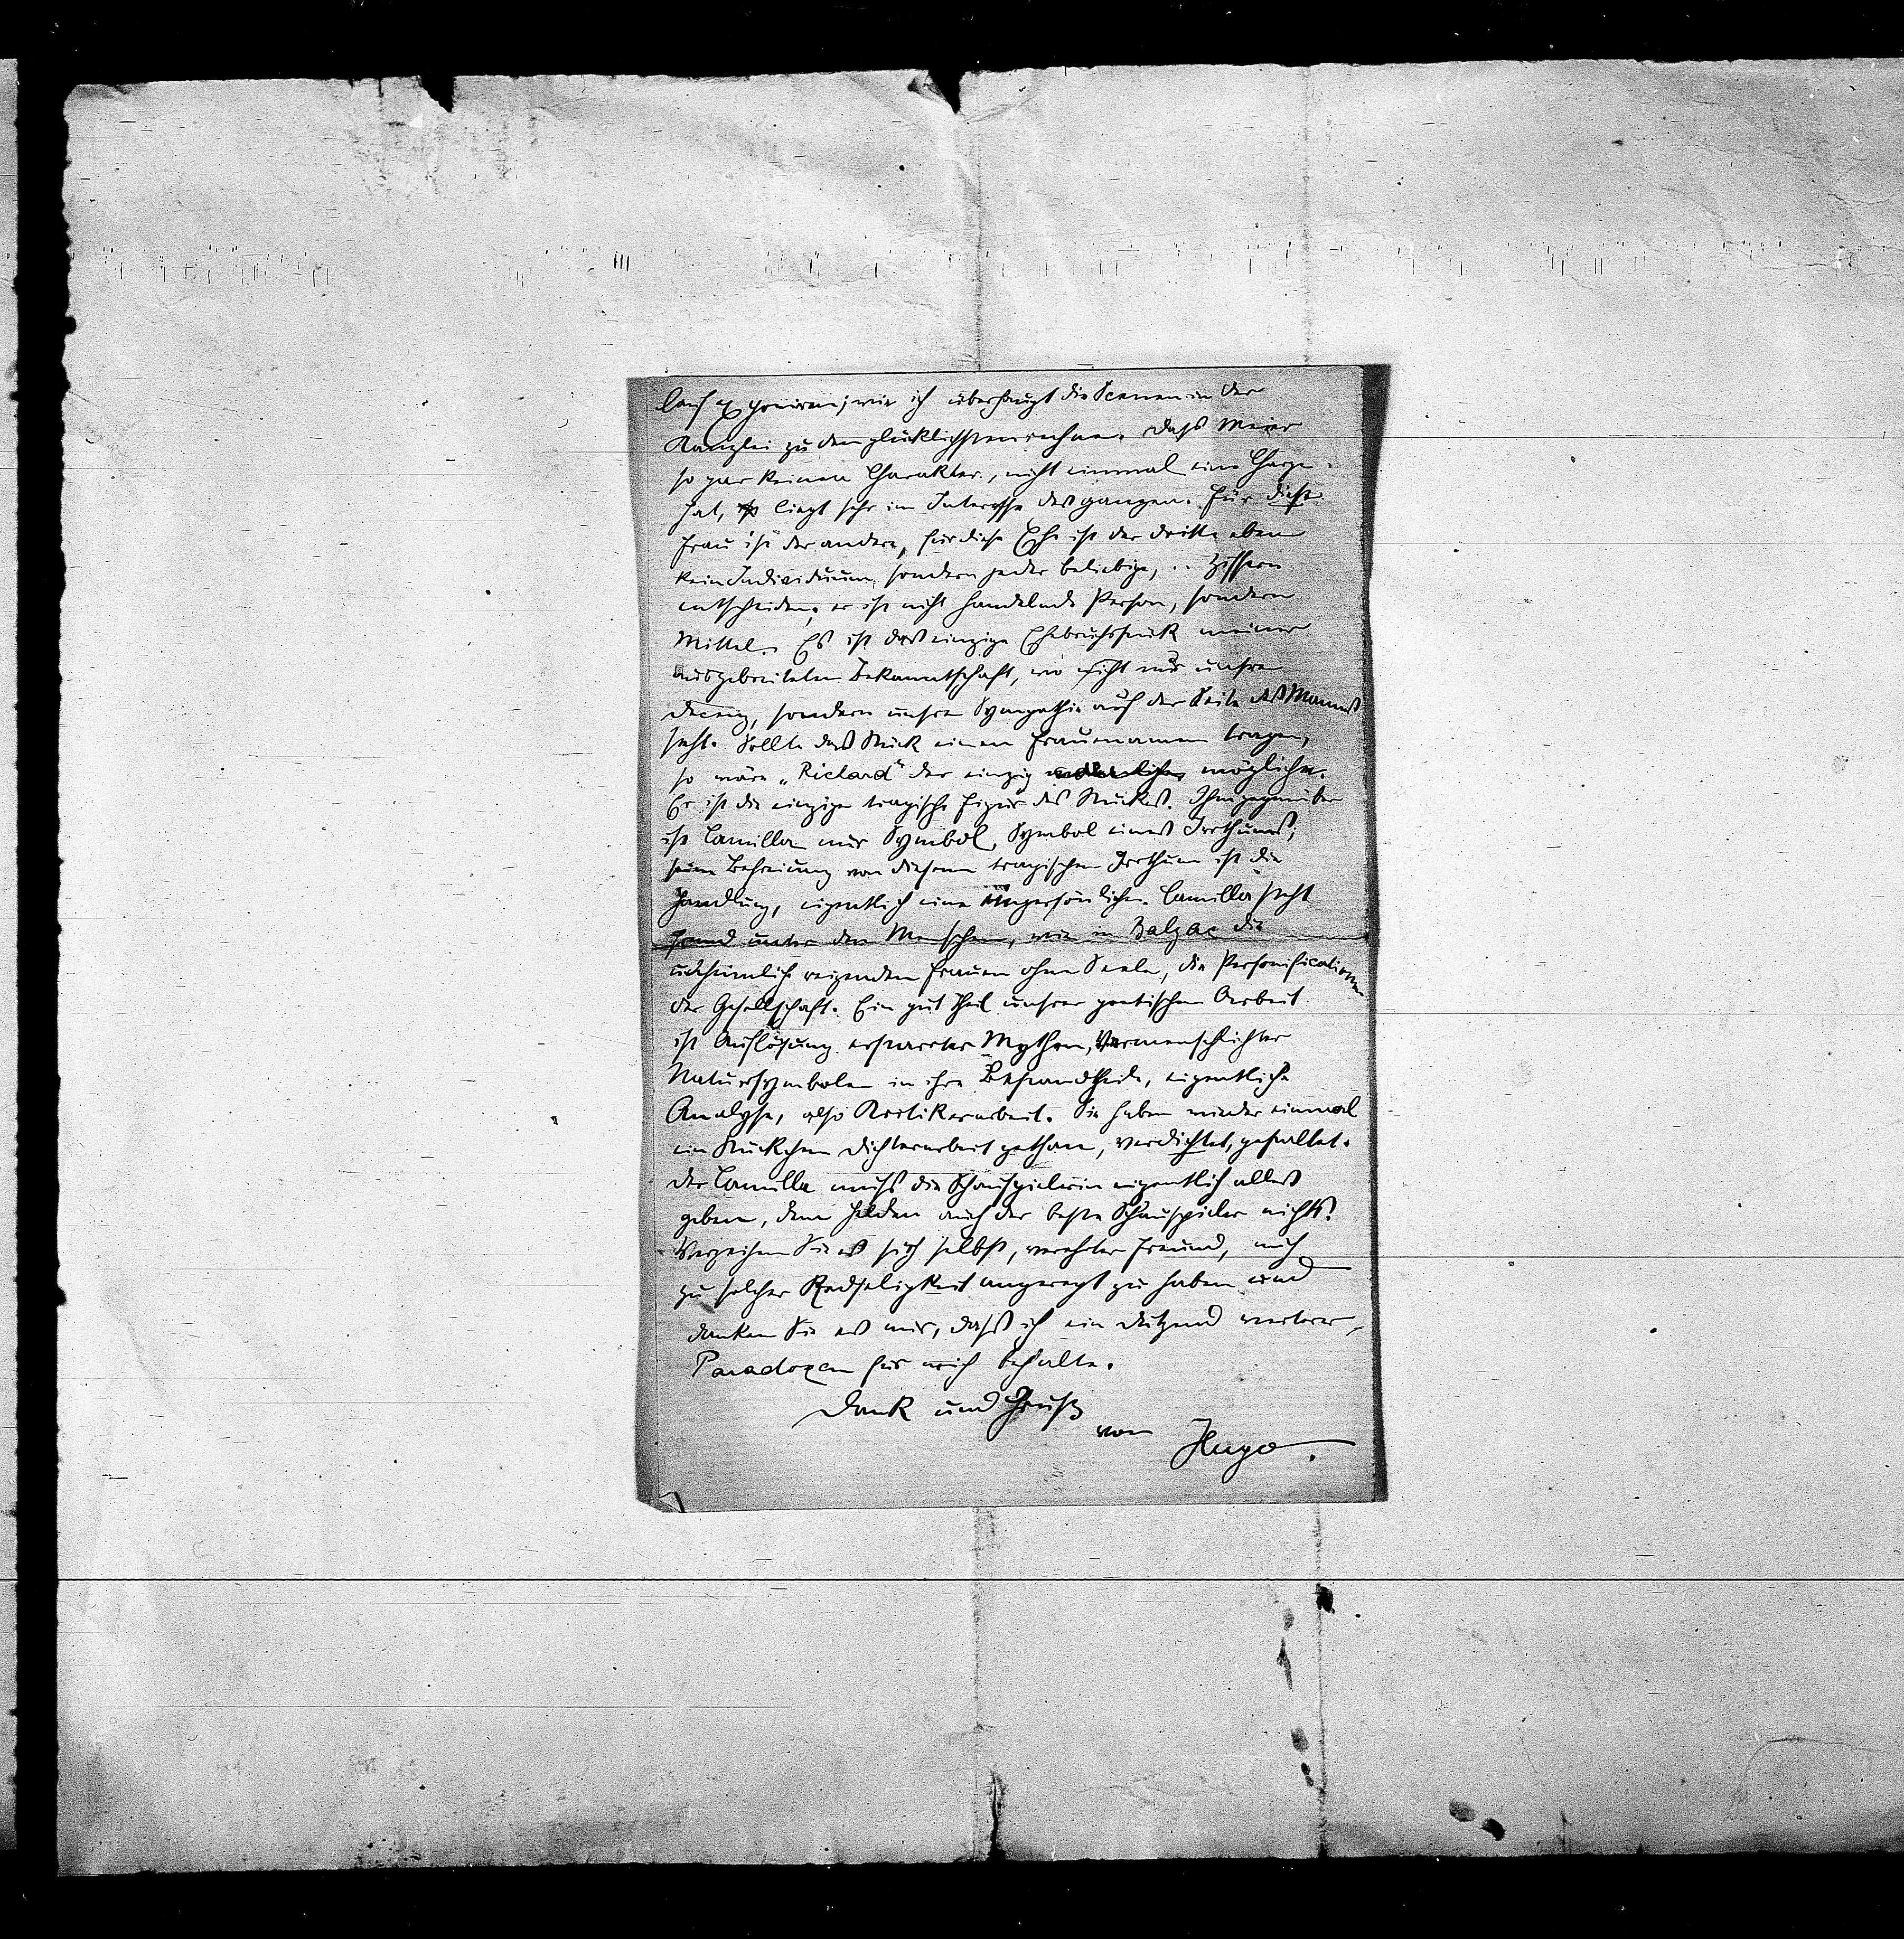 lauf exponiren; wie ich überhaupt die Scenen in der
Kanzlei zu den glücklichsten rechne. Dass Meier
so gar keinen Charakter, nicht einmal eine Charge
hat, liegt sehr im Interesse des ganzen. Für diese
Frau ist der andere, für diese Ehe ist der dritte eben
kein Individuum, sondern jeder beliebige, .. Ziffern
entscheiden; er ist nicht handelnde Person, sondern
Mittel. Es ist das einzige Ehebruchsstück meiner
ausgebreiteten Bekanntschaft, wo nicht nur unsre
Decenz, sondern unsre Sympathie auf der Seite des Mannes
steht. Sollte das Stück einen Frauennamen tragen,
so wäre „Richard“ der einzig mögliche.
Er ist die einzige tragische Figur des Stückes. Ihm gegenüber
ist Camilla nur Symbol, Symbol eines Irrthums;
seine Befreiung von diesem tragischen Irrthum ist die
Handlung, eigentlich eine unpersönliche. Camilla steht
fremd unter den Menschen, wie in Balzac die
unheimlich reizenden Frauen ohne Seele, die Personificationen
der Gesellschaft. Ein gut Theil unsrer poetischen Arbeit
ist Auflösung erstarrter Mythen, vermenschlichter
Natursymbole in ihre Bestandtheile, eigentliche
Analyse, also Kritikerarbeit. Sie haben wieder einmal
ein Stückchen Dichterarbeit gethan, verdichtet, gestaltet.
Der Camilla muss die Schauspielerin eigentlich alles
geben, dem Helden auch der beste Schauspieler nichts.
Verzeihen Sie es sich selbst, verehrter Freund, mich
zu solcher Redseligkeit angeregt zu haben und
danken Sie es mir, dass ich ein Dutzend weiterer
Paradoxen für mich behalte.
Dank und Gruß
von
Hugo.